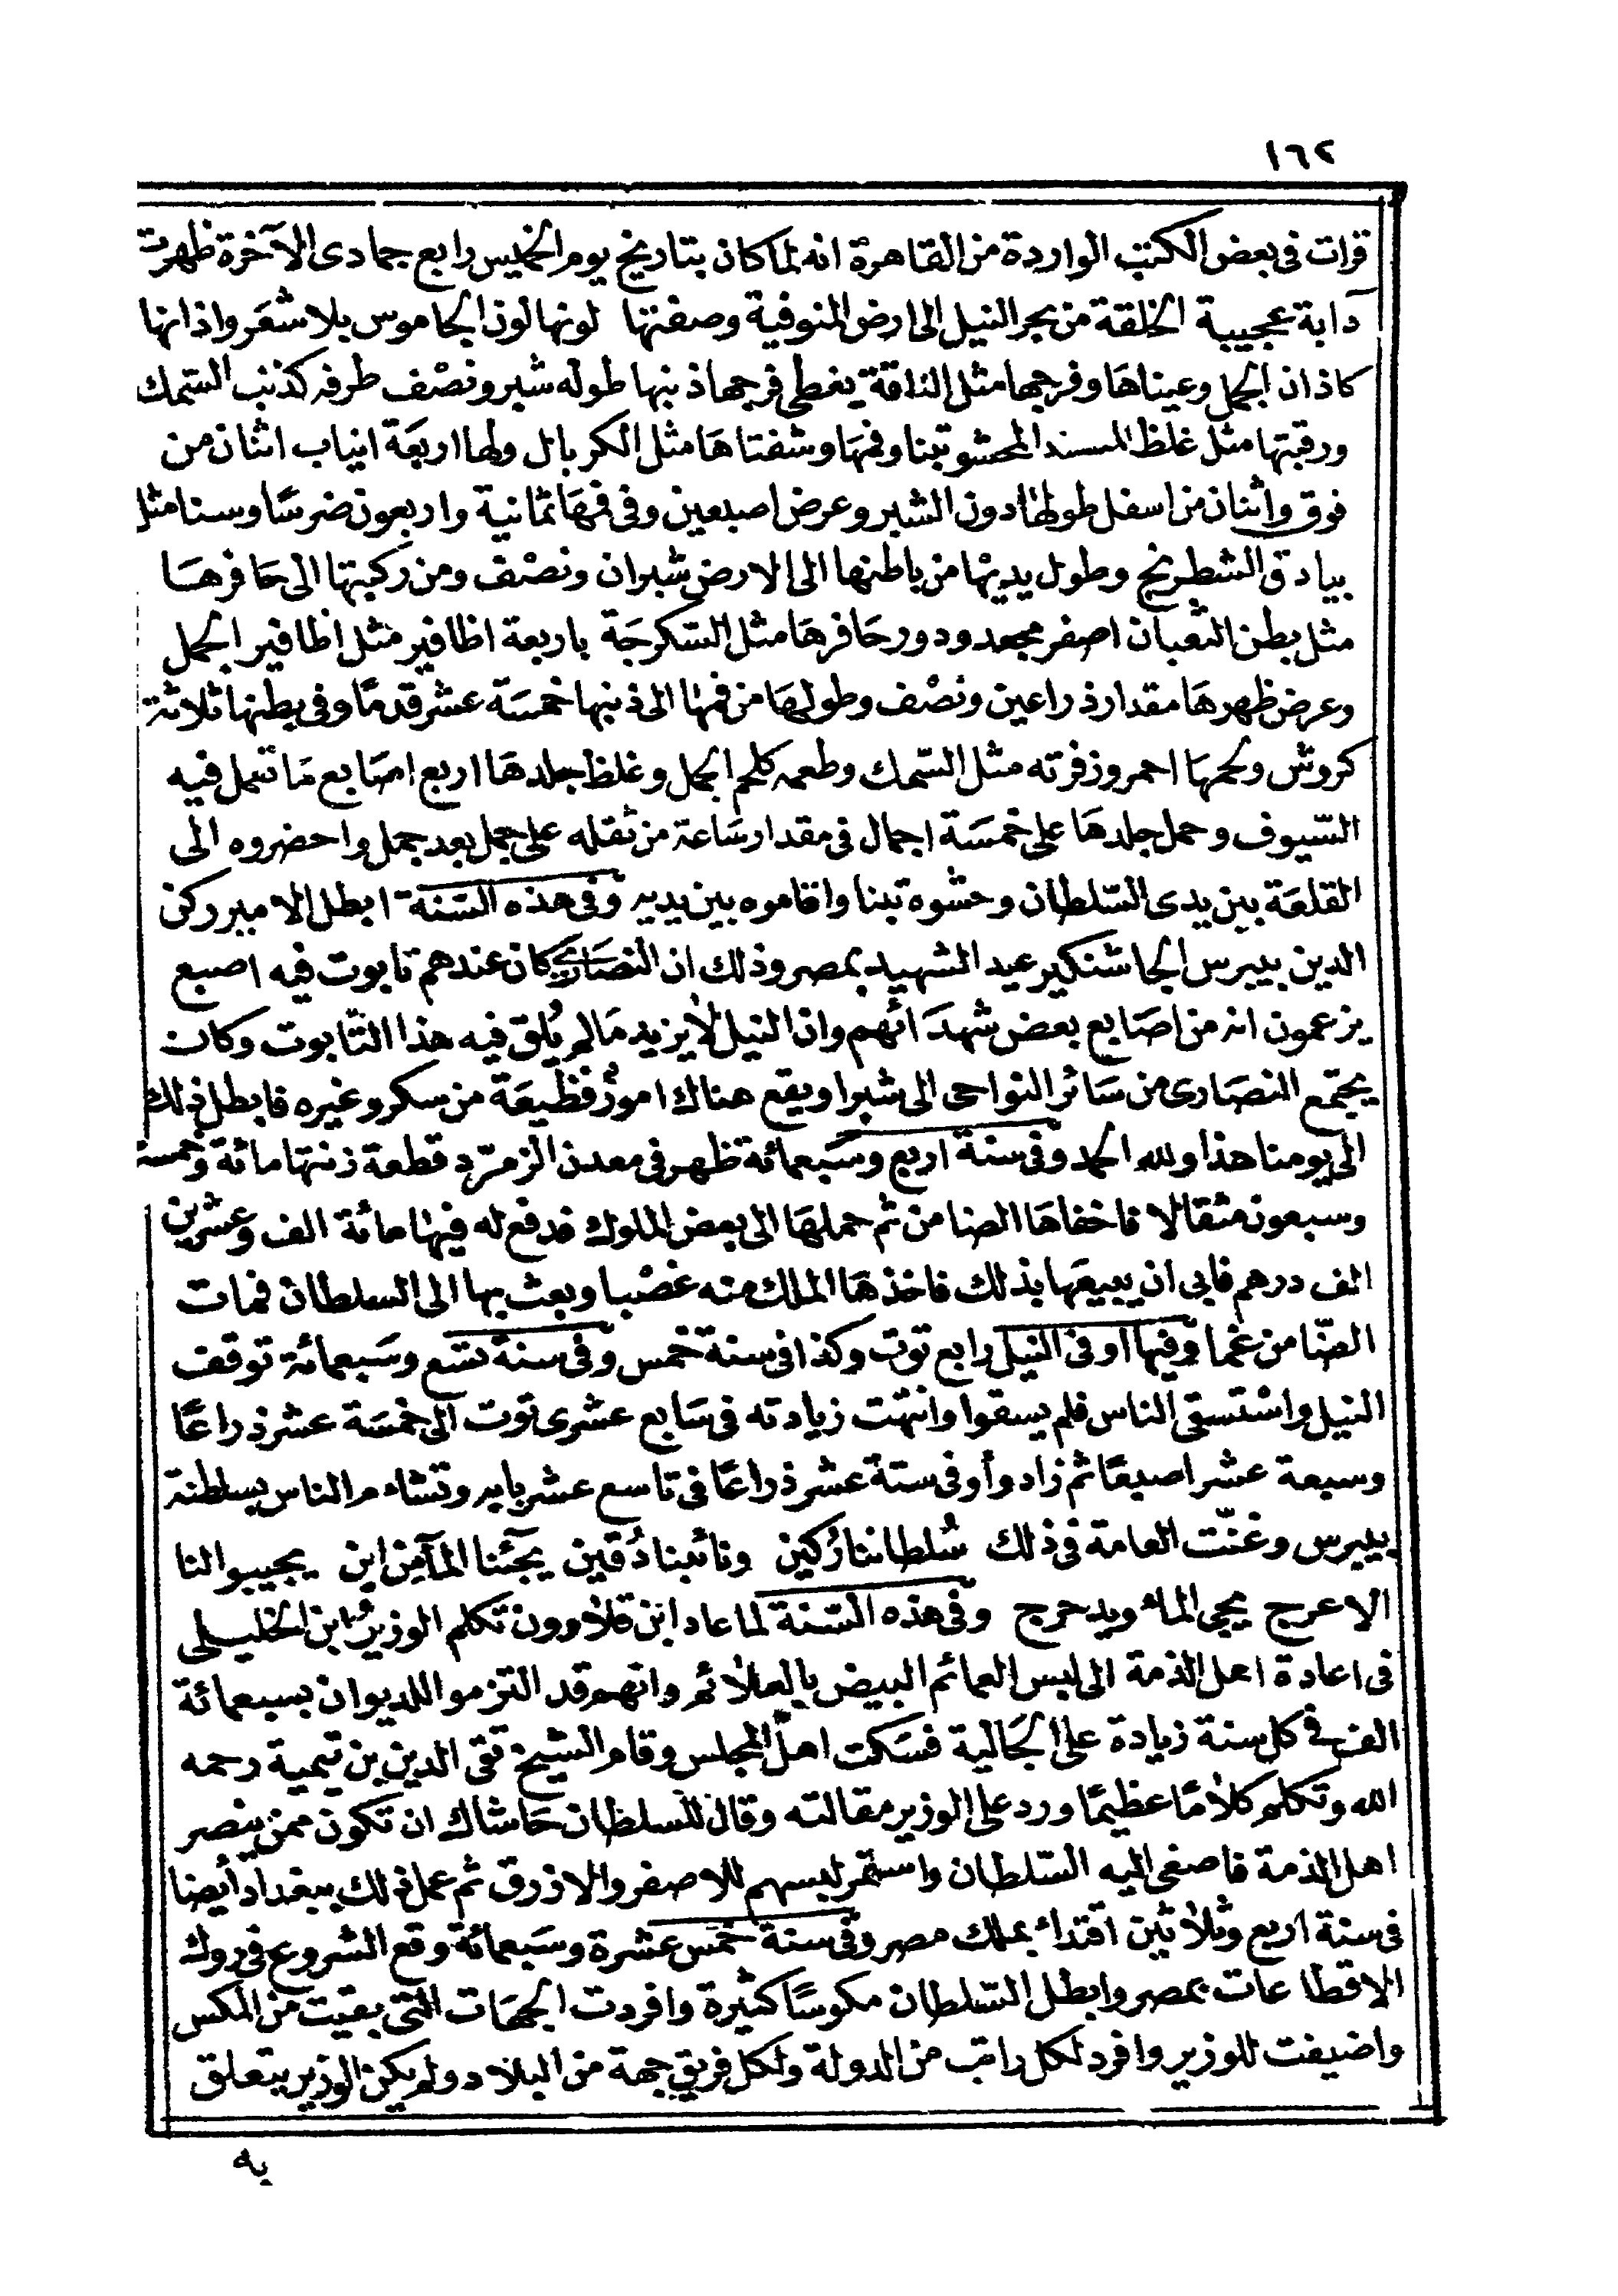 ١٦٢
قرات فى بعض الكتب الواردة من القاهرة انه لما كان بتاريخ يوم الخميس رابع جمادى الآخرة ظهرت
دابة عجيبة الخلقة من بحر النيل الى ارض المنوفية وصفتها لونها لون الجاموس بلا شعر واذانها
كاذان الجمل وعيناها وفرجها مثل الناقة يغطى فرجها ذنبها طوله شبر ونصف طرفه كذنب السمك
ورقبتها مثل غلظ المسند المحشو تبنا وفمها وشفتاها مثل الكربال ولها اربعة انياب اثنان من
فوق واثنان من اسفل طولها دون الشبر وعرض اصبعين وفى فمها ثمانية واربعون ضرسا وسنا مثل
بيادق الشطرنج وطول يديها من باطنها الى الارض شبران ونصف ومن ركبتها الى حافرها
مثل بطن الثعبان اصفر مجعد ودور حافرها مثل السكرجة باربعة اظافير مثل اظافير الجمل
وعرض ظهرها مقدار ذراعين ونصف وطولها من فمها الى ذنبها خمسة عشر قدما وفى بطنها ثلاثة
كروش ولحمها احمر وزفرته مثل السمك وطعمه كلحم الجمل وغلظ جلدها اربع اصابع ما تعمل فيه
السيوف وحمل جلدها على خمسة اجمال فى مقدار ساعة من ثقله على جمل بعد جمل واحضروه الى
القلعة بين يدى السلطان وحشوه تبنا واقاموه بين يديه وفى هذه السنة ابطل الامير ركن
الدين بيبرس الجاشنكير عيد الشهيد بمصر وذلك ان النصارى كان عندهم تابوت فيه اصبع
يزعمون انه من اصابع بعض شهدائهم وان النيل لا يزيد ما لم يُلق فيه هذا التابوت وكان
يجتمع النصارى من سائر النواحى الى شبرا ويقع هناك امور فظيعة من سكر وغيره فابطل ذلك
الى يومنا هذا ولله الحمد وفى سنة اربع وسبعمائة ظهر فى معدن الزمرد قطعة زنتها مائة وخمسة
وسبعون مثقالا فاخفاها الضامن ثم حملها الى بعض الملوك فدفع له فيها مائة الف وعشرين
الف درهم فابى ان يبيعها بذلك فاخذها الملك منه غصبا وبعث بها الى السلطان فمات
الضامن غما وفيها اوفى النيل رابع توت وكذا فى سنة خمس وفى سنة تسع وسبعمائة توقف
النيل واستسقى الناس فلم يسقوا وانتهت زيادته فى سابع عشرى توت الى خمسة عشر ذراعًا
وسبعة عشر اصبعًا ثم زاد وأوفى ستة عشر ذراعًا فى تاسع عشر بابه وتشاءم الناس بسلطنة
بيبرس وغنّت العامة فى ذلك سُلطاننا رُكين ونائبنا دُقين يجئنا المآ مِن اين يجيبوا لنا
الاعرج يجى الماء ويدحرج وفى هذه السنة لما عاد ابن قلاوون تكلم الوزير ابن الخليلى
فى اعادة اهل الذمة الى لبس العمائم البيض بالعلائم وانهم قد التزموا للديوان بسبعمائة
الف فى كل سنة زيادة على الجالية فسكت اهل المجلس وقام الشيخ تقى الدين بن تيمية رحمه
الله وتكلم كلامًا عظيمًا ورد على الوزير مقالته وقال للسلطان حاشاك ان تكون ممن ينصر
اهل الذمة فاصغى اليه السلطان واستمر لبسهم للاصفر والازرق ثم عمل ذلك ببغداد أيضا
فى سنة اربع وثلاثين اقتداء بملك مصر وفى سنة خمس عشرة وسبعمائة وقع الشروع فى روك
الاقطاعات بمصر وابطل السلطان مكوسًا كثيرة وافردت الجهات التى بقيت من المكس
واضيفت للوزير وافرد لكل راتب من الدولة ولكل فريق جهة من البلاد ولم يكن الوزير يتعلق
به